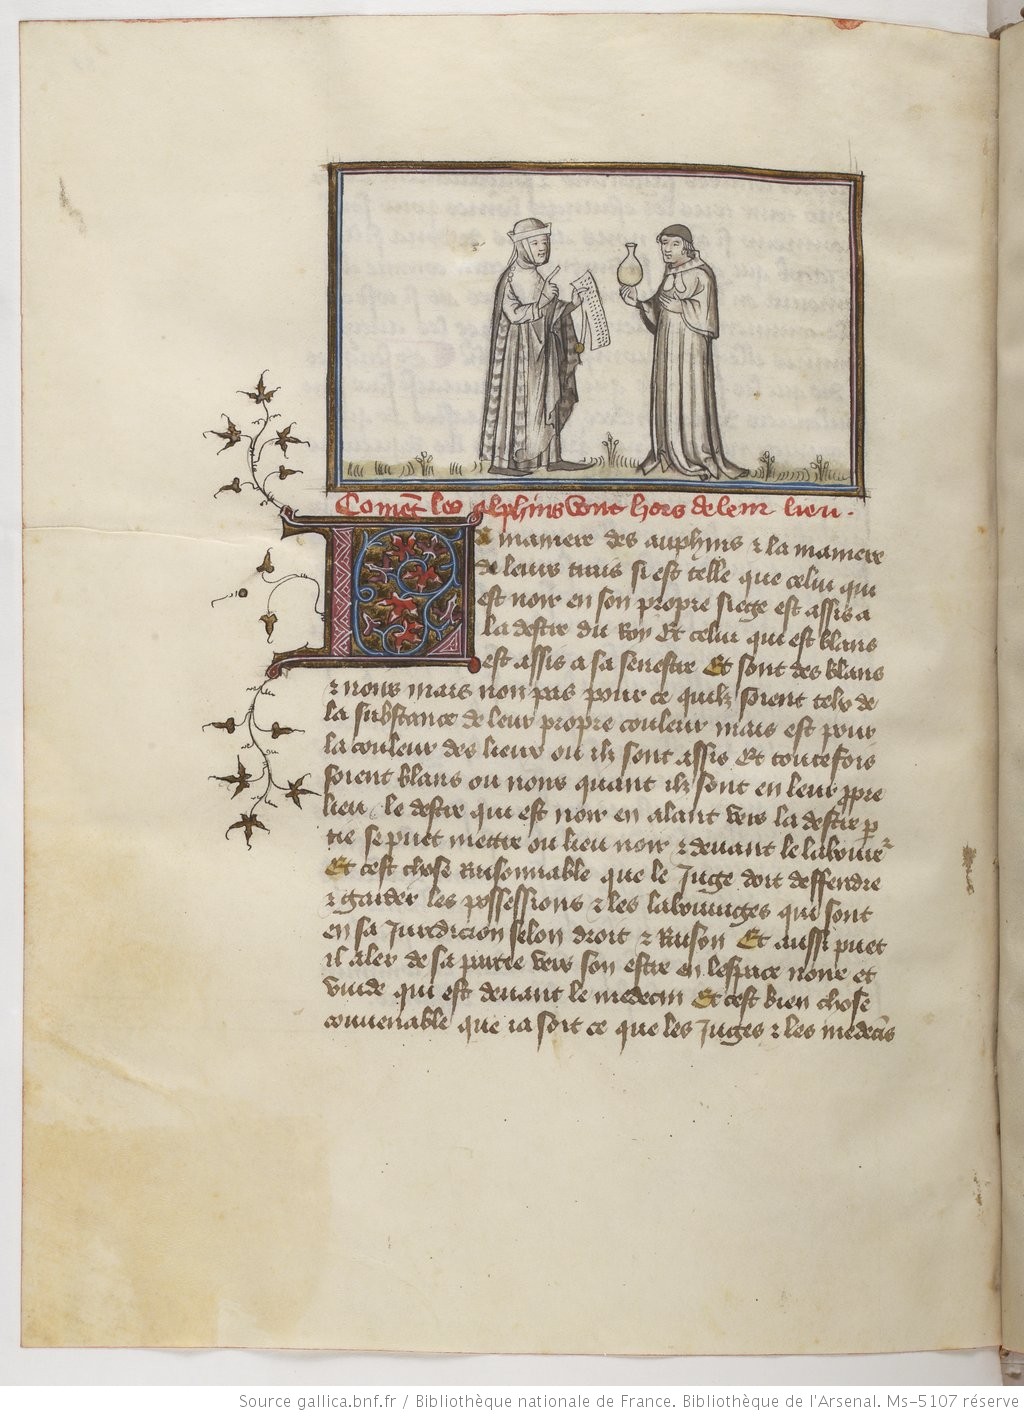 Coment les alphins vont hors de leur lieu.
La maniere des auphins & la maniere
de leurs trais si est telle que celui qui
est noir en son propre siege est assis a
la destre du Roy Et celui qui est blans
est assis a sa senestre Et sont des blans
& noirs mais non pas pour ce quilz soient telz de
la substance de leur propre couleur mais est pour
la couleur des lieux ou ilz sont assis Et toutefois
soient blans ou noirs quant ilz sont en leur ppre
lieu le destre qui est noir en alant vers la destre p
tie se puet mettre ou lieu noir & devant le labourr
Et cest chose Raisonnable que le Juge doit deffendre
& garder les possessions & les labourages qui sont
en sa Juredicion selon droit & Raison Et aussi puet
il aler de sa partie vers son estre en lespace noire et
vuide qui est devant le medecin Et cest bien chose
convenable que ia soit ce que les Juges & les medecis
Source gallica.bnf.fr / Bibliothèque nationale de France. Bibliothèque de l'Arsenal. Ms-5107 réserve